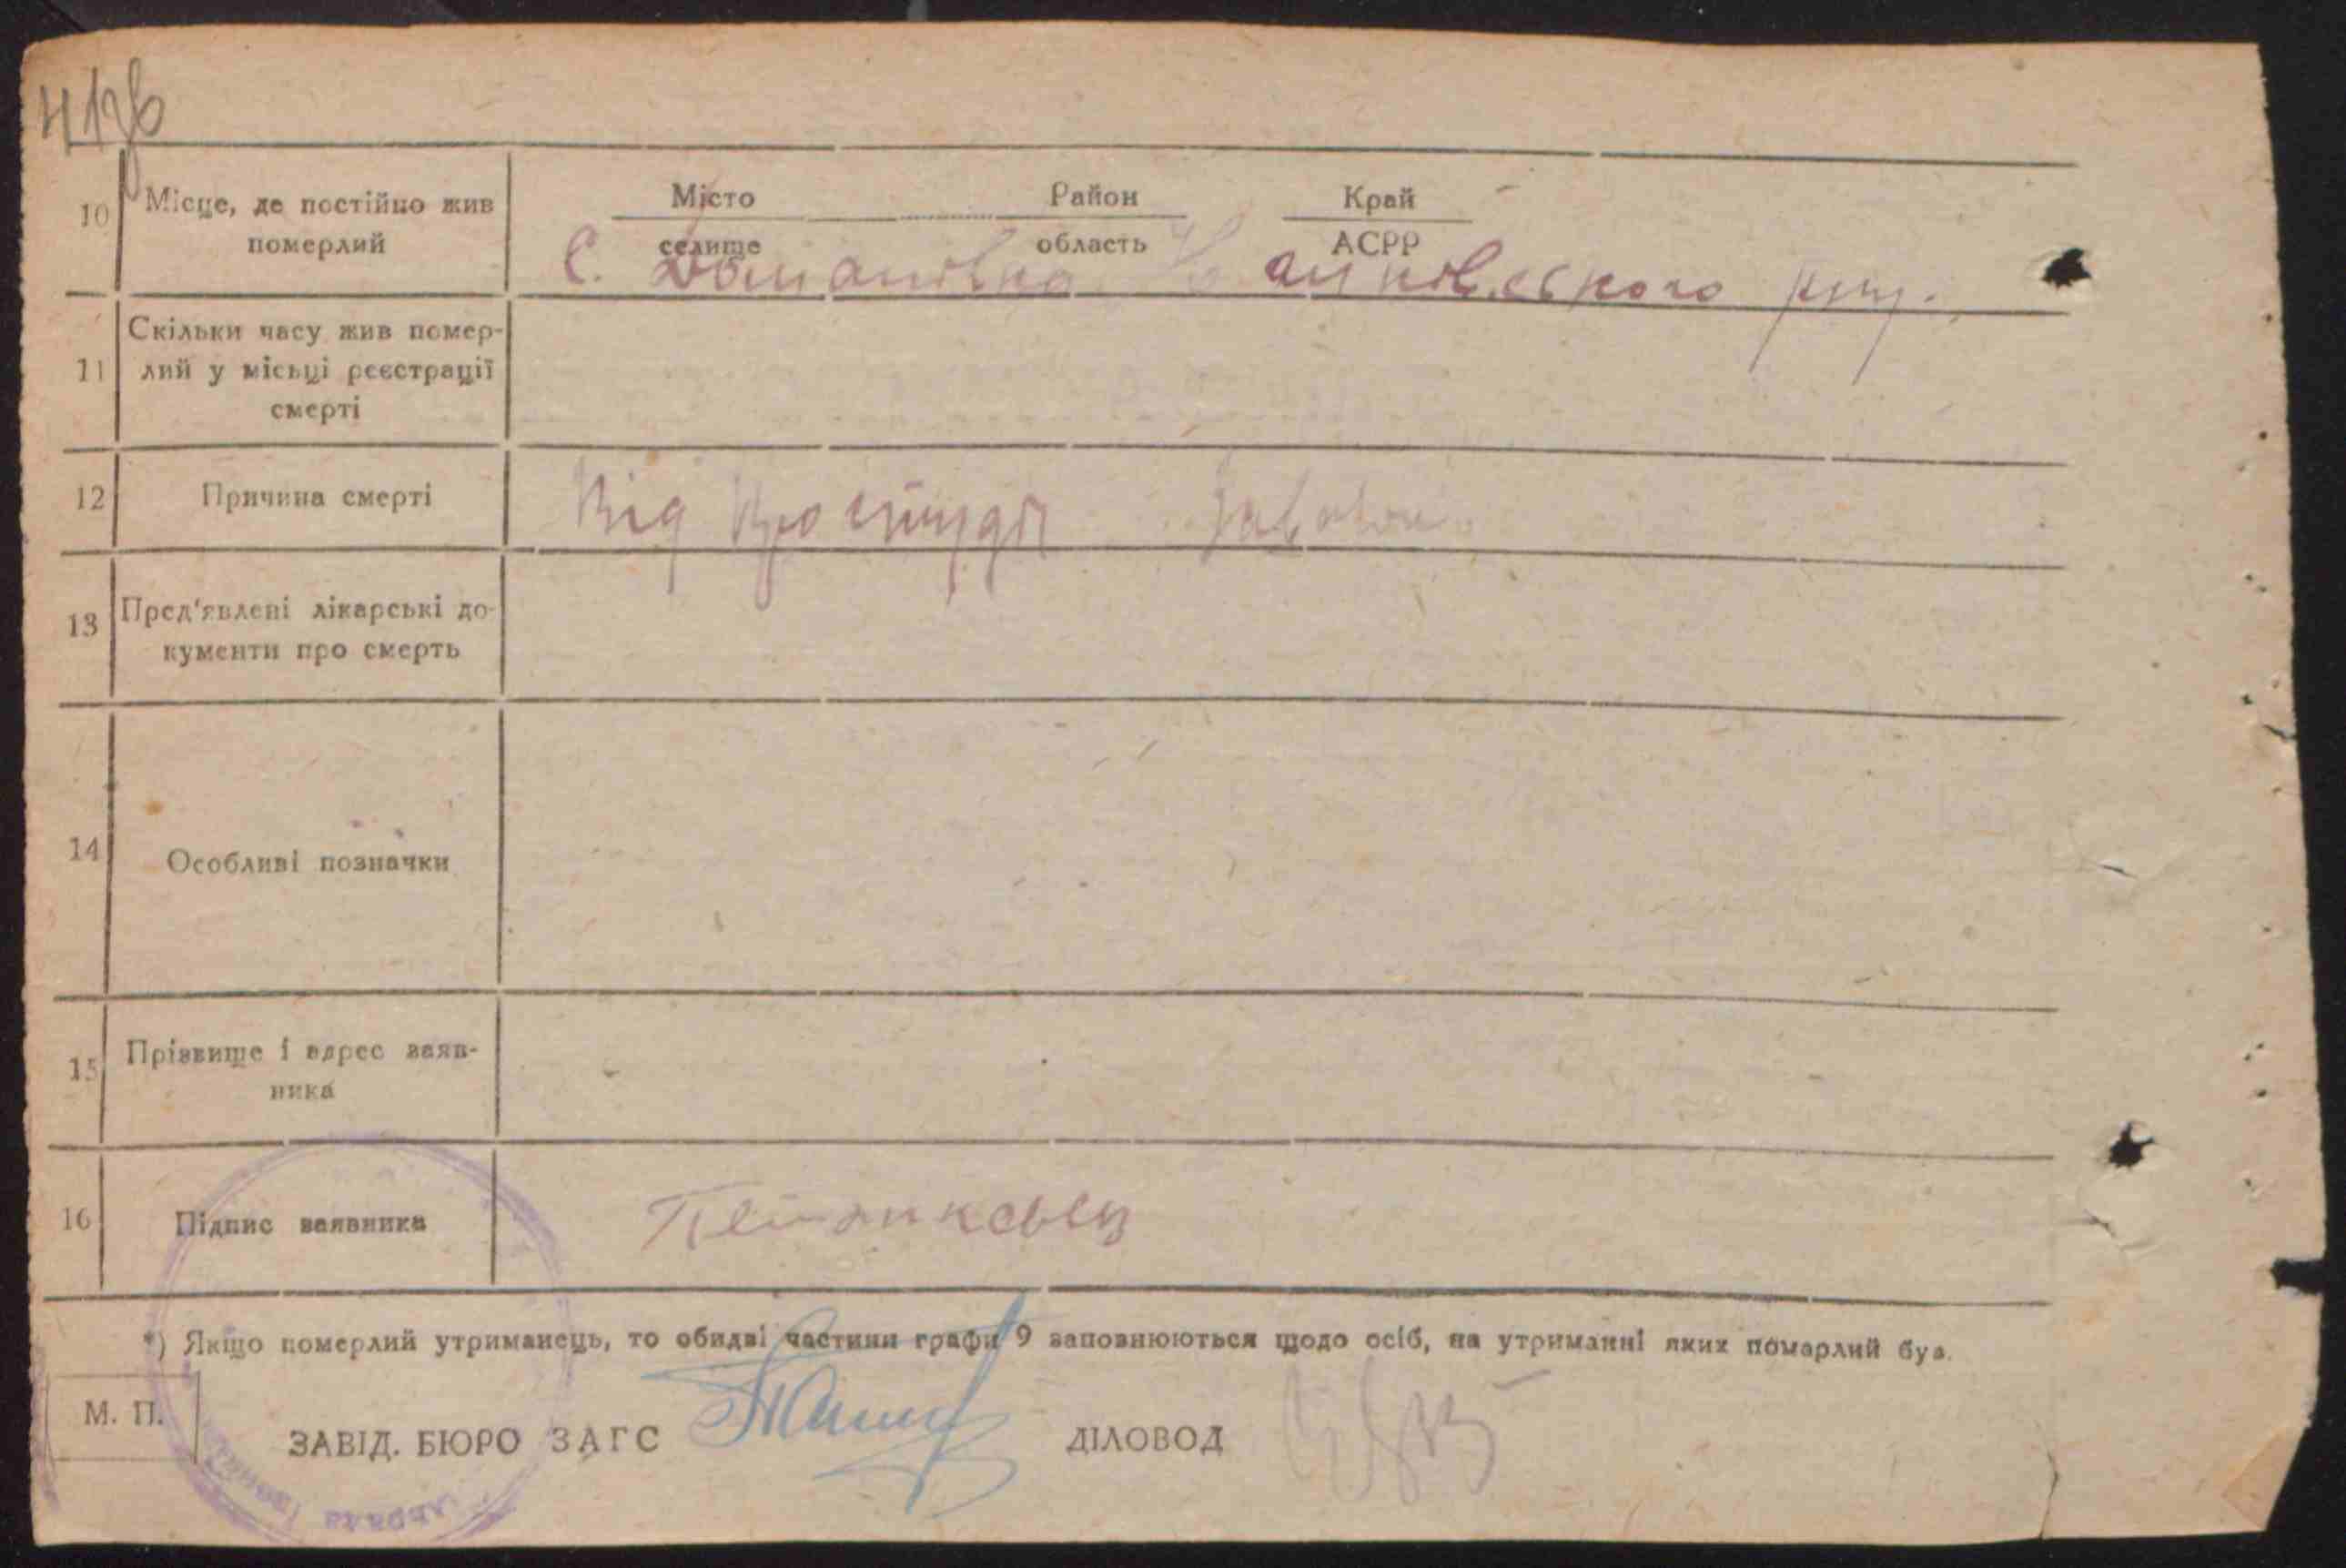 10 Місце, де постійно жив померлий
Місто Район Край
селище область АСРР
С. Доманівка
11 Скільки часу жив помер-
лий у місьці реєстрації
смерті
12 Причина смерті Від простуди
13 Пред'явлені лікарські до-
кументи про смерть
14 Особливі позначки
15 Прізвище і адрес заяв-
ника
16 Підпис заявника
*) Якщо померлий утриманець, то обидві частини графи 9 заповнюються щодо осіб, на утриманні яких померлий був.
М. П.
ЗАВІД. БЮРО ЗАГС ДІЛОВОД